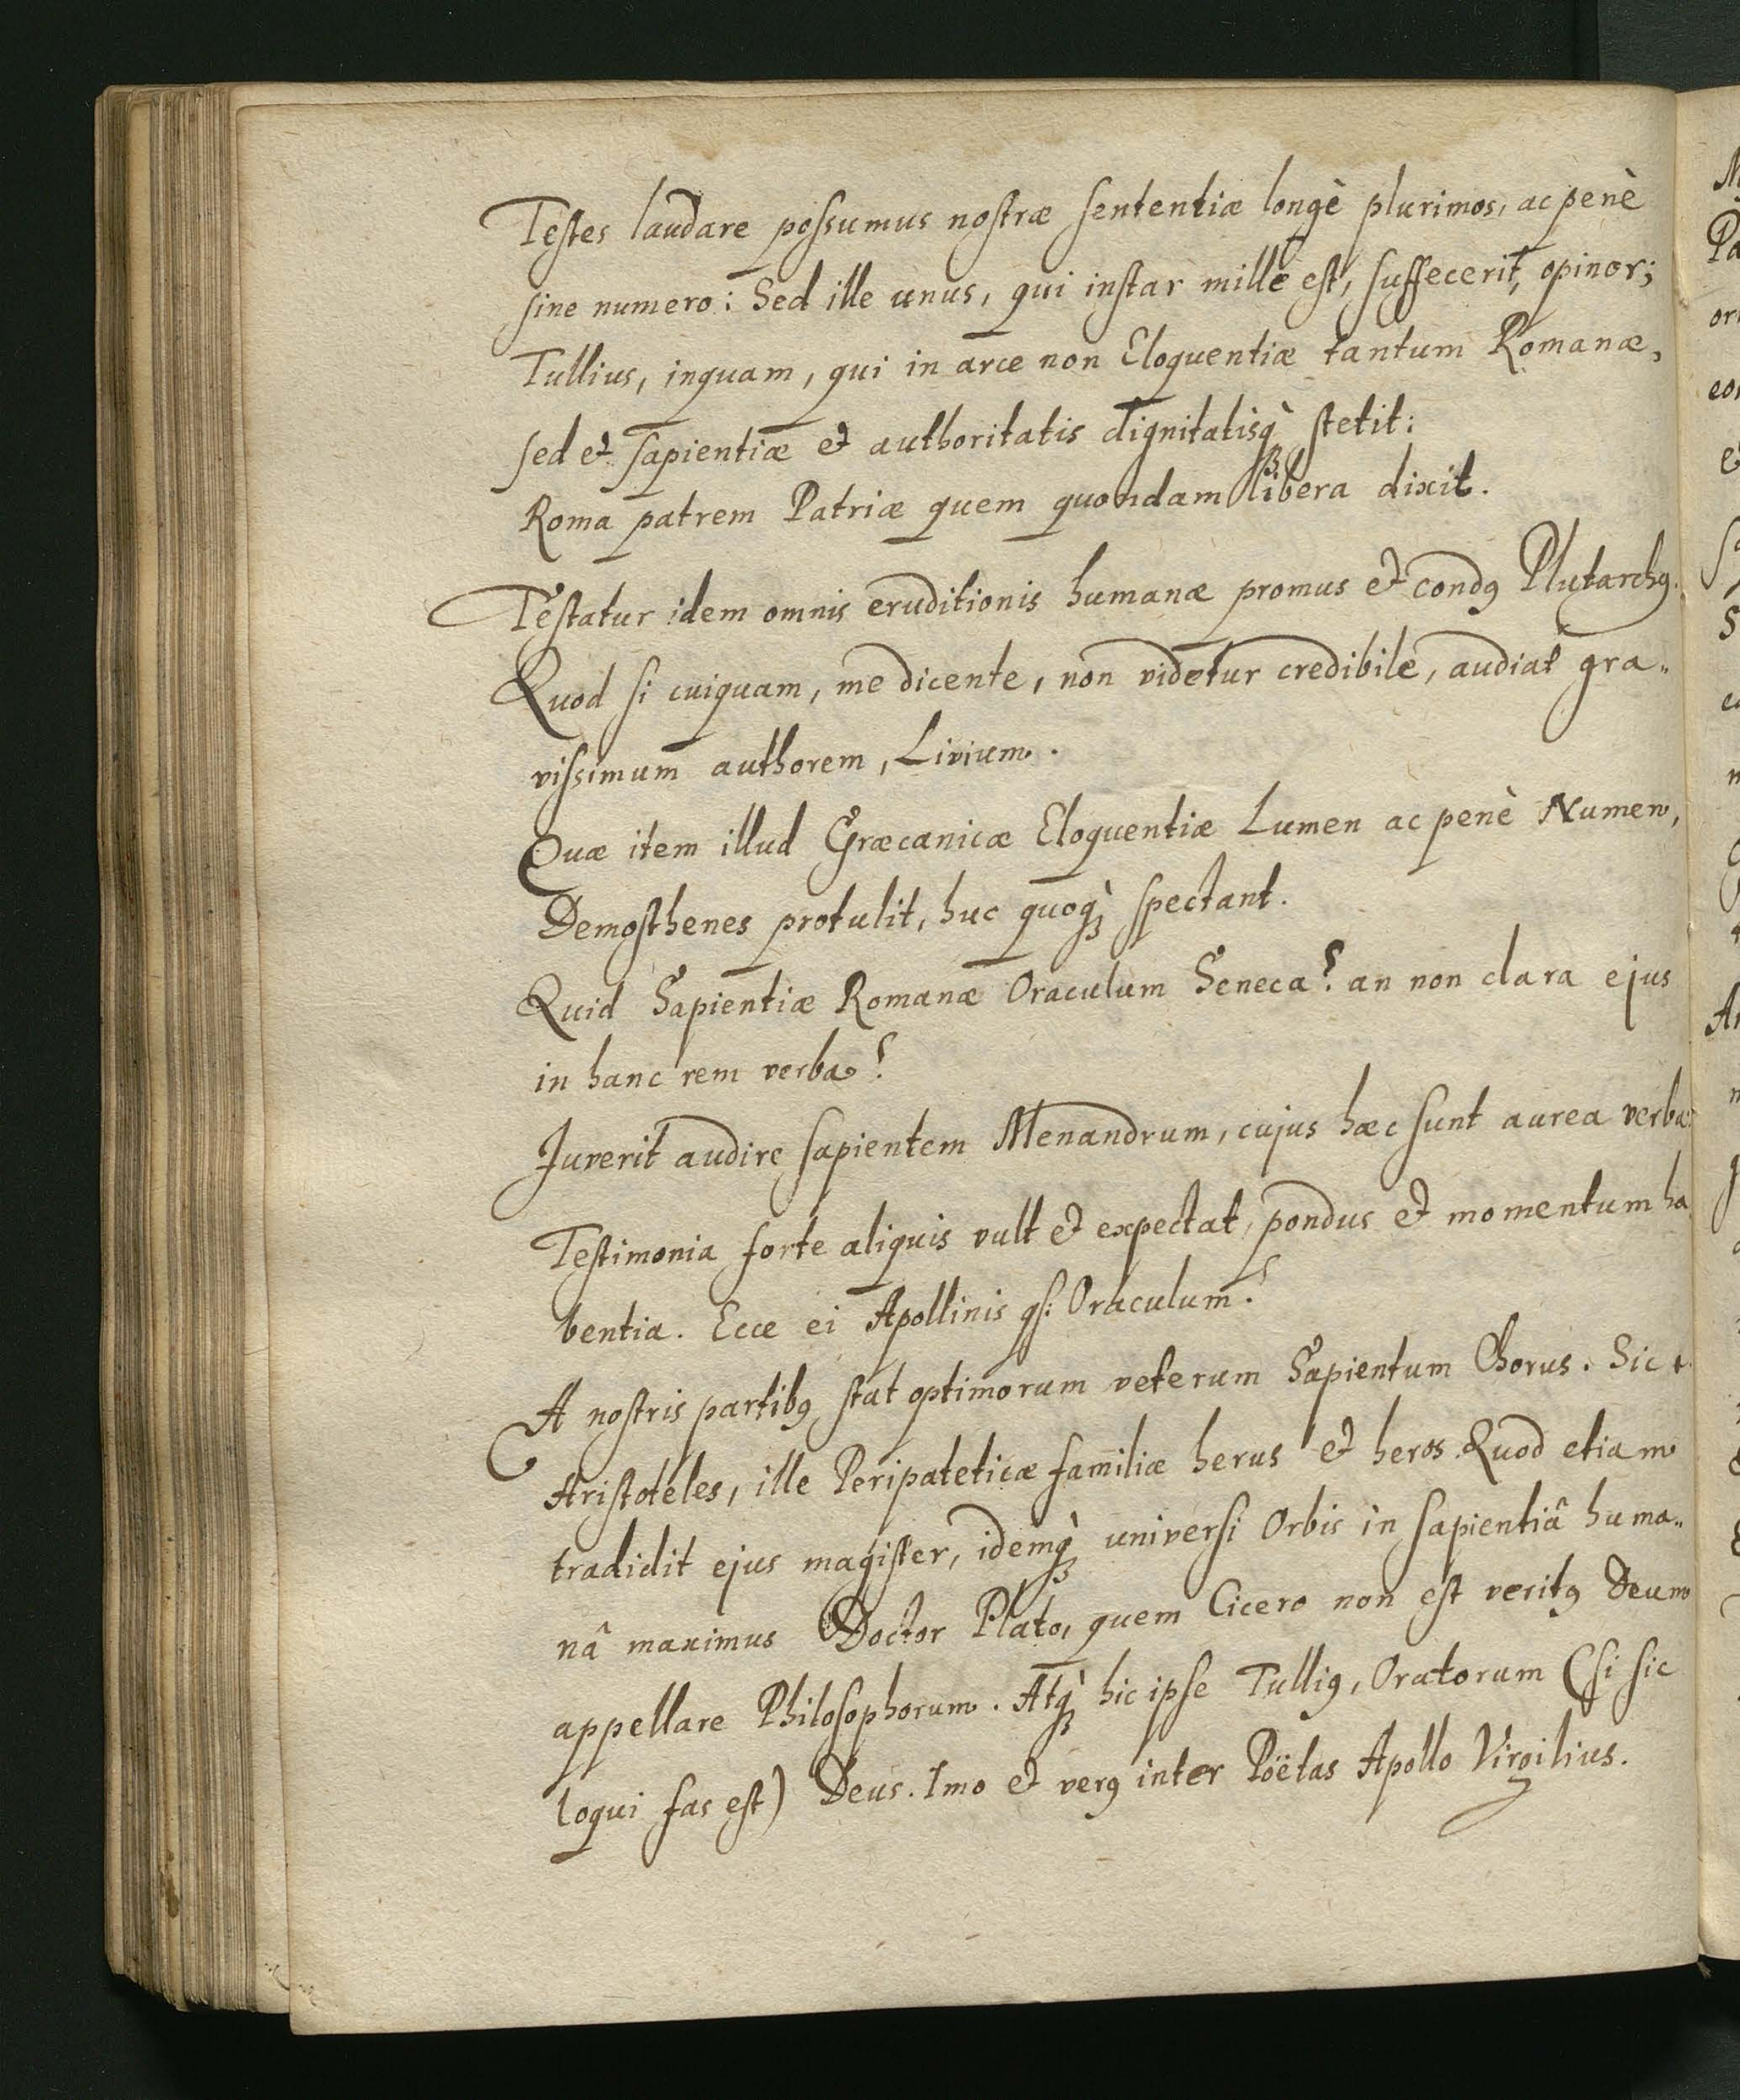 Testes laudare possumus nostræ sententiæ longè plurimos, ac penè
sine numero: Sed ille unus, qui instar mille est, suffecerit, opinor;
Tullius, inquam, qui in arce non Eloquentiæ tantum Romanæ,
sed et sapientiæ et authoritatis dignitatisq̀ꝫ stetit:
Roma patrem Patriæ quem quondam libera dixit.
Testatur idem omnis eruditionis humanæ promus et condꝰ Plutarchꝰ.
Quod si cuiquam, me dicente, non videtur credibile, audiat gra„
vissimum authorem, Livium.
Quæ item illud Græcanicæ Eloquentiæ Lumen ac penè Numen,
Demosthenes protulit, huc quoq̀ꝫ spectant.
Quid Sapientiæ Romanæ Oraculum Seneca? an non clara ejus
in hanc rem verba?
Juverit audire sapientem Menandrum, cujus hæc sunt aurea verba:
Testimonia forte aliquis vult et expectat, pondus et momentum ha
bentia. Ecce ei Apollinis qs: Oraculum?
A nostris partibꝰ stat optimorum veterum Sapientum Chorus. Sic
Aristoteles, ille Peripateticæ familiæ herus et heros. Quod etiam
tradidit ejus magister, idemq̀ꝫ universi Orbis in sapientiâ huma„
nâ maximus Doctor Plato, quem Cicero non est veritꝰ Deum
appellare Philosophorum. Atq̀ꝫ hic ipse Tulliꝰ, Oratorum (si sic
loqui fas est) Deus. Imo et verꝰ inter Poëtas Apollo Virgilius.